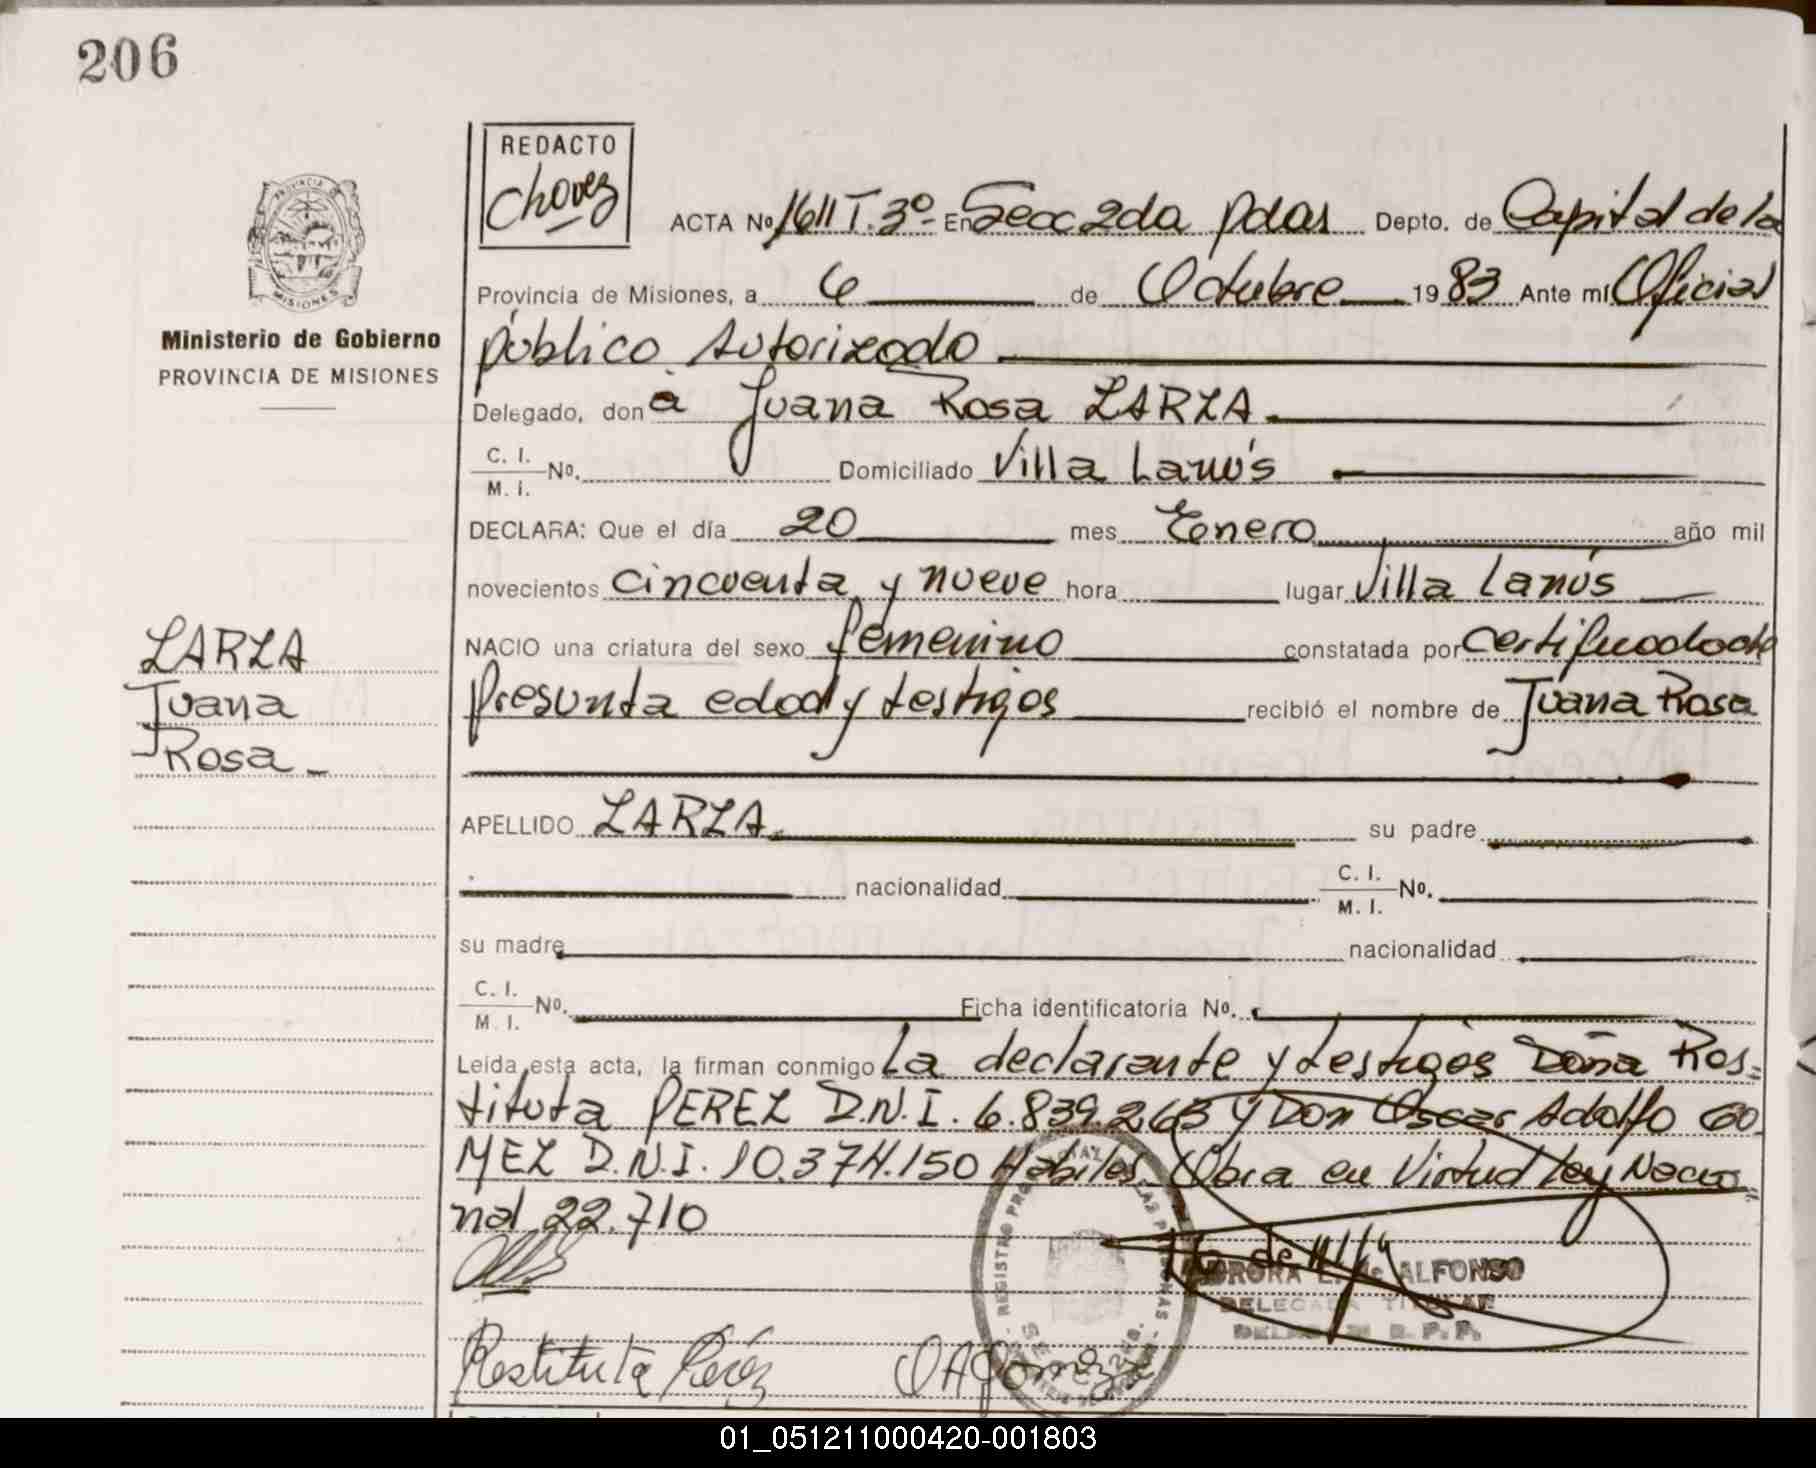 206
REDACTO
Chavez
ACTA No 1611 T. 3º- En Secc 2da Pdas Depto. de Capital de la
Provincia de Misiones, a 6 de Octubre 1983 Ante mí Oficial
público Autorizado
Delegado, don a Juana Rosa LARZA.
C. I.
M. I. No. Domiciliado Villa Lanús
DECLARA: Que el día 20 mes Enero año mil
novecientos cincuenta y nueve hora lugar Villa Lanús
NACIO una criatura del sexo femenino constatada por certificado de
presunta edad y testigos recibió el nombre de Juana Rosa
APELLIDO LARZA. su padre
nacionalidad C. I.
M. I. No.
su madre nacionalidad
C. I.
M. I. No. Ficha identificatoria No.
Leída esta acta, la firman conmigo La declarante y testigos Doña Res-
tituta PEREZ D.N.I. 6.839.263 y Don Oscar Adolfo GO
MEZ D.N.I. 10.374.150 Hábiles. Obra en Virtud Ley Nacio
nal 22.710
L. de ALFONSO
DELEGADA TITULAR
R. P. P.
Restituta Pérez OAGomez
REGISTRO PROVINCIAL DE LAS PERSONAS
PROVINCIA
MISIONES
Ministerio de Gobierno
PROVINCIA DE MISIONES
LARZA
Juana
Rosa
01_051211000420-001803